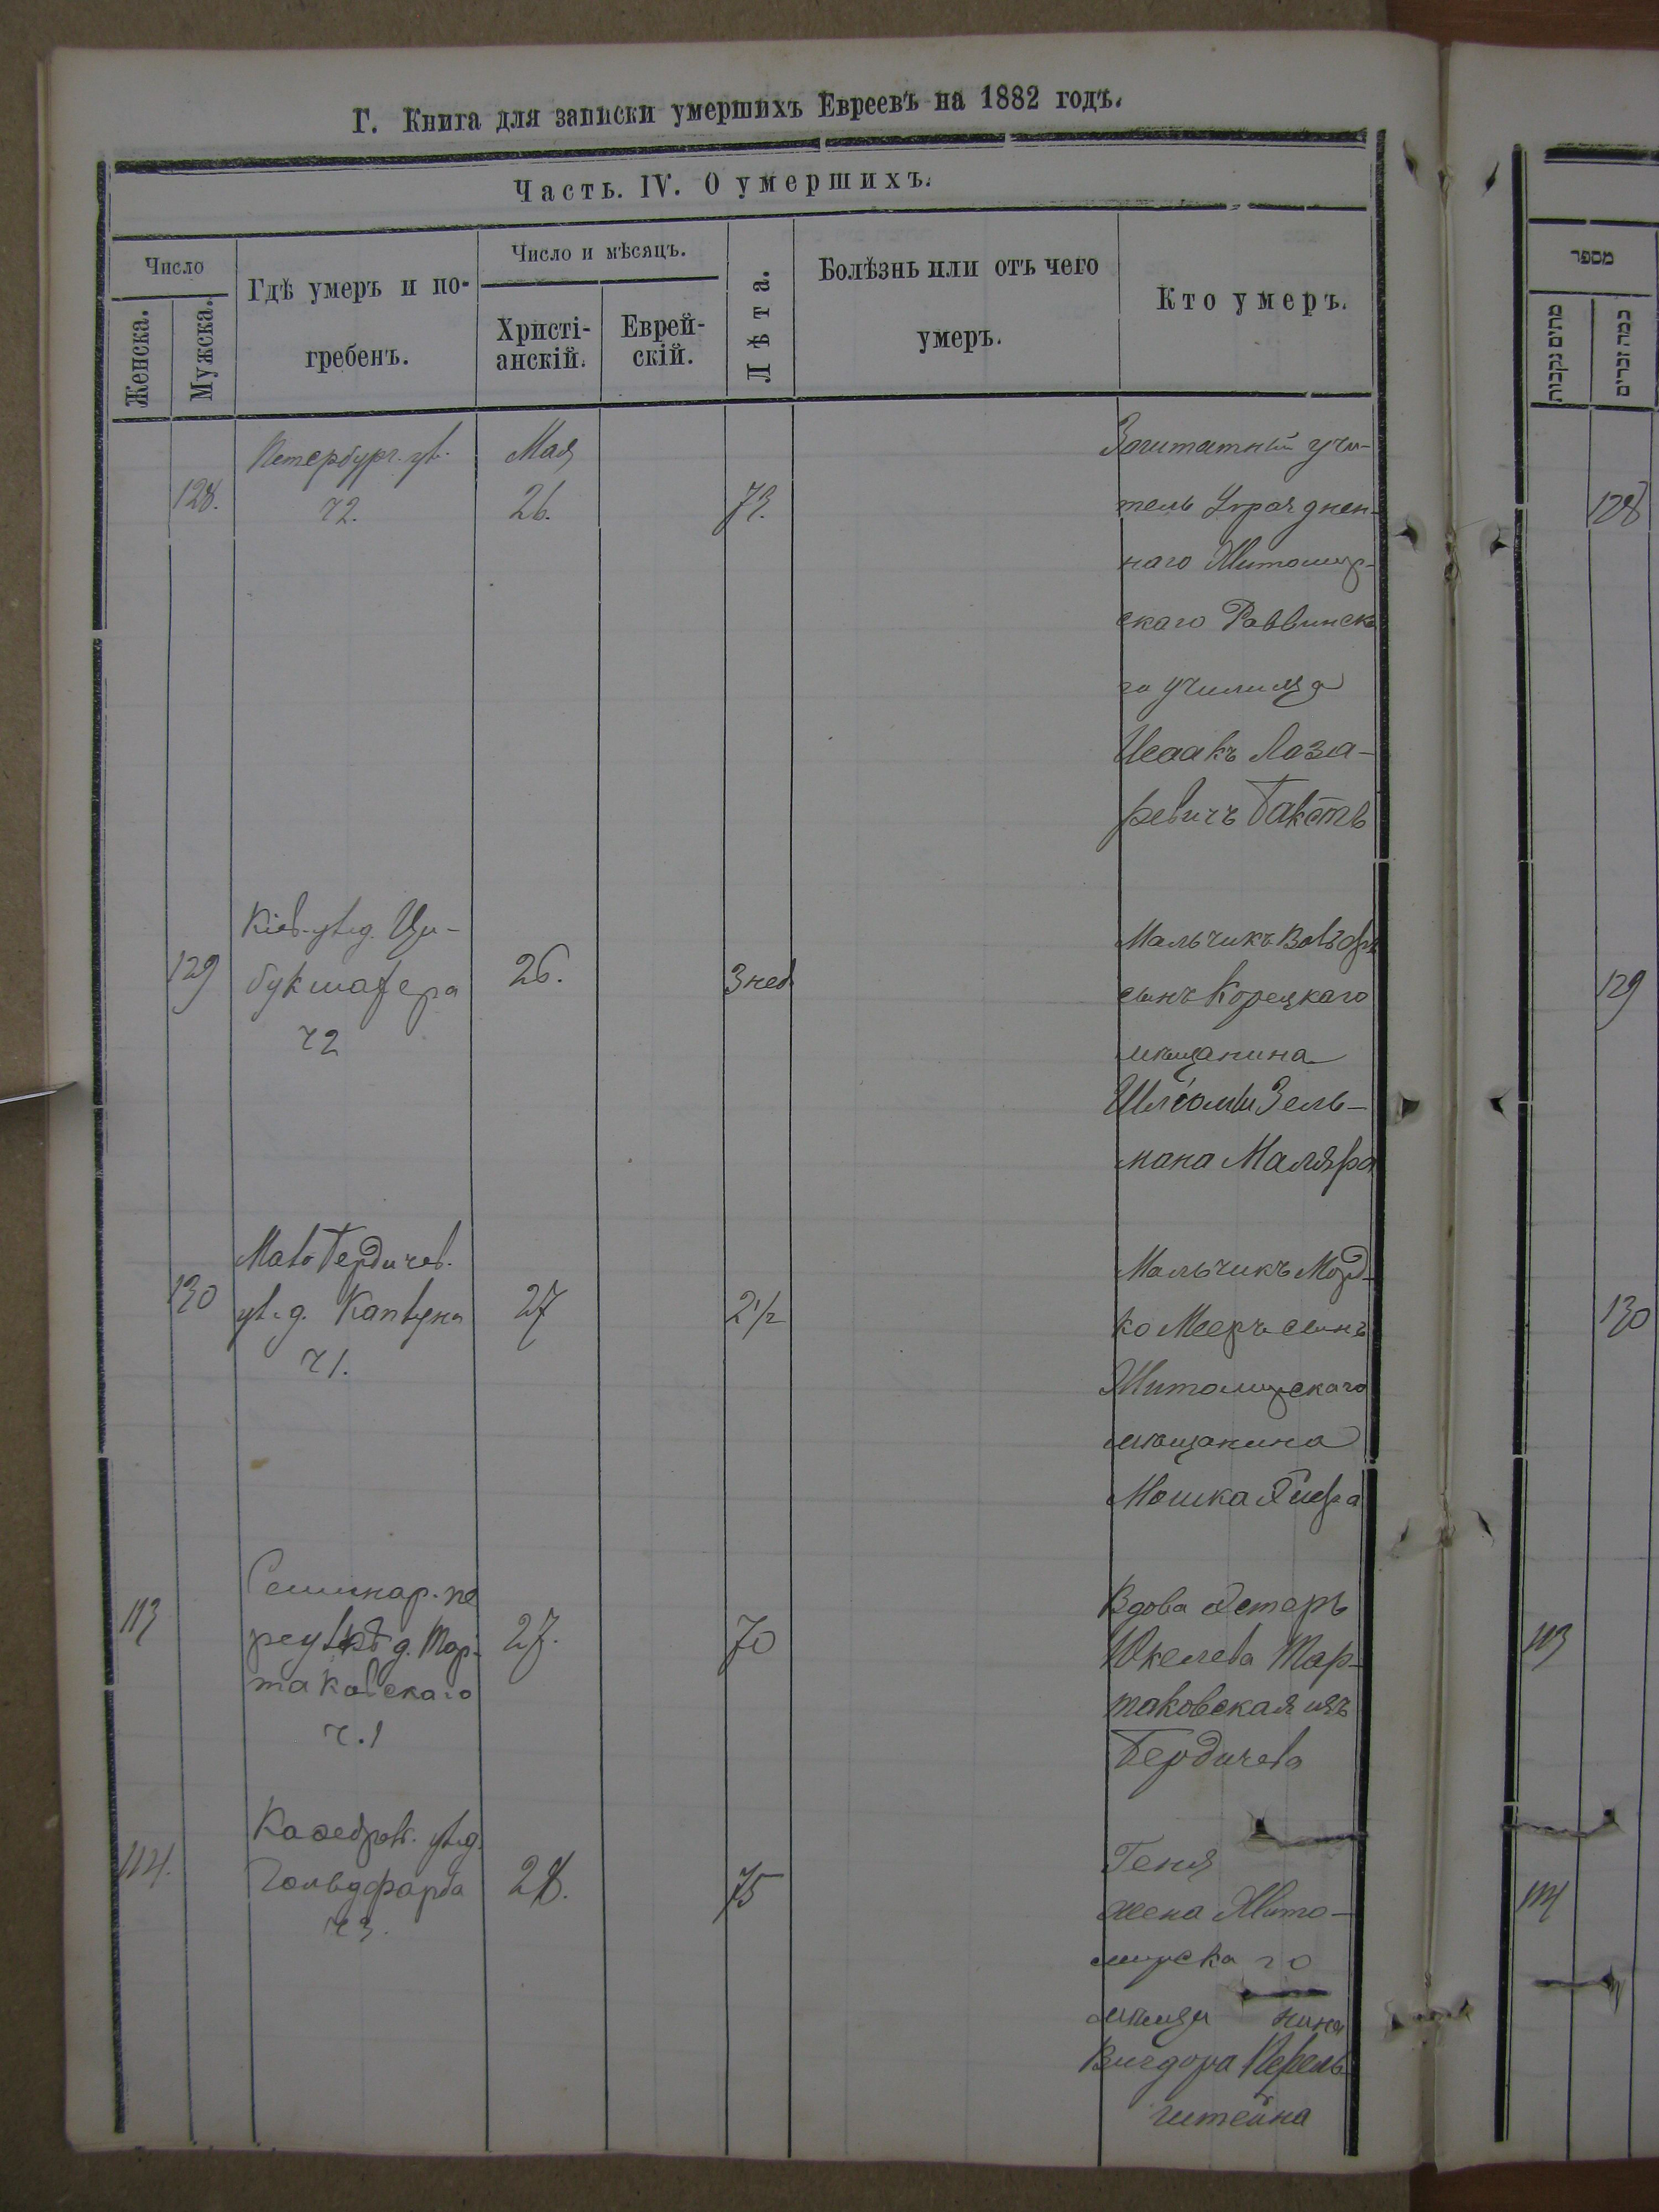 Г. Книга для записки умершихъ Евреевъ на 1882 годъ.
Часть. IV. О умершихъ.
Число
Женска.
Мужска.
Гдѣ умеръ и по-
гребенъ.
Число и мѣсяцъ.
Христі-
анскій.
Еврей-
скій.
Лѣта.
Болѣзнь или отъ чего
умеръ.
Кто умеръ.
128.
Петербург. ул.
ч2.
Мая
26.
73.
Заштатный учи-
тель Упразднен-
наго Житомир-
скаго Раввинска
го училища
Исаакъ Лаза-
ревичъ Бакстъ
129
Кіев. ул. д. Цу-
букшафера
ч2
26.
3 нед
Мальчикъ
сынъ Корецкаго
мѣщанина
Шліомы Зель-
мана Маляра
130
Мало Бердичев.
ул. д.
ч1.
27
2 1/2
Мальчикъ Морд-
ко Мееръ сынъ
Житомирскаго
мѣщанина
Мошка
113
Семинар. пе
реулкѣ д. Тар-
таковскаго
ч.1
27.
70
Вдова Эстеръ
Юкелева Тар-
таковская изъ
Бердичева
114.
Каѳедрал. ул. д.
Гольдфарба
ч3.
28.
75
Геня
жена Жито-
мирскаго
мѣщанина
Вигдора Перель
штейна
מספר
מתים נקבות
כמה זכרים
128
129
130
113
114